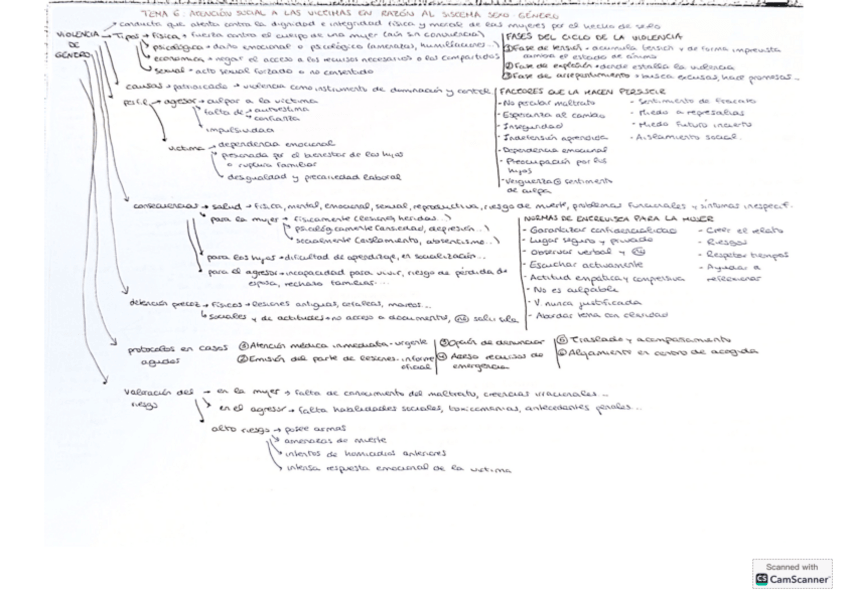 TEMA 6. ATENCIÓN SOCIAL A LAS VÍCTIMAS EN RAZÓN AL SISTEMA SEXO-GÉNERO
VIOLENCIA DE GÉNERO
→ conducta que atenta contra la dignidad e integridad física y moral de las mujeres por el hecho de serlo
→ Tipos → física → fuerza contra el cuerpo de una mujer (aún sin convivencia)
psicológica → daño emocional o psicológico (amenazas, humillaciones...)
económica → negar el acceso a los recursos necesarios o los compartidos
sexual → acto sexual forzado o no consentido
FASES DEL CICLO DE LA VIOLENCIA
① Fase de tensión → acumula tensión y de forma imprevista cambia el estado de ánimo
② Fase de explosión → donde estalla la violencia
③ Fase de arrepentimiento → busca excusas, hace promesas...
causas → patriarcado → violencia como instrumento de dominación y control
perfil → agresor → culpar a la víctima
falta de → autoestima
→ confianza
impulsividad
víctima → dependencia emocional
preocupada por el bienestar de los hijos
o ruptura familiar
desigualdad y precariedad laboral
FACTORES QUE LA HACEN PERSISTIR
- No percibir maltrato
- Esperanza al cambio
- Inseguridad
- Indefensión aprendida
- Dependencia emocional
- Preocupación por los hijos
- Vergüenza o sentimiento de culpa
- Sentimiento de fracaso
- Miedo a represalias
- Miedo futuro incierto
- Aislamiento social
consecuencias → salud → física, mental, emocional, sexual, reproductiva, riesgo de muerte, problemas funcionales y síntomas inespecíf.
para la mujer → físicamente (lesiones, heridas...)
psicológicamente (ansiedad, depresión...)
socialmente (aislamiento, absentismo...)
para los hijos → dificultad de aprendizaje, en socialización...
para el agresor → incapacidad para vivir, riesgo de pérdida de
esposa, rechazo familiar...
NORMAS DE ENTREVISTA PARA LA MUJER
- Garantizar confidencialidad
- Lugar seguro y privado
- Observar verbal y no
- Escuchar activamente
- Actitud empática y comprensiva
- No es culpable
- V. nunca justificada
- Abordar tema con claridad
- Creer el relato
- Riesgos
- Respetar tiempos
- Ayudar a reflexionar
detención precoz → físicos → lesiones antiguas, cefaleas, mareos...
sociales y de actitudes → no acceso a documento, no salir sola
protocolos en casos agudos
① Atención médica inmediata-urgente
② Emisión del parte de lesiones-informe oficial
③ Opción de denunciar
④ Acceso recursos de emergencia
⑤ Traslado y acompañamiento
⑥ Alojamiento en centro de acogida
valoración del riesgo → en la mujer → falta de conocimiento del maltrato, creencias irracionales...
en el agresor → falta habilidades sociales, toxicomanías, antecedentes penales...
alto riesgo → posee armas
amenazas de muerte
intentos de homicidios anteriores
intensa respuesta emocional de la víctima
Scanned with
CS CamScanner